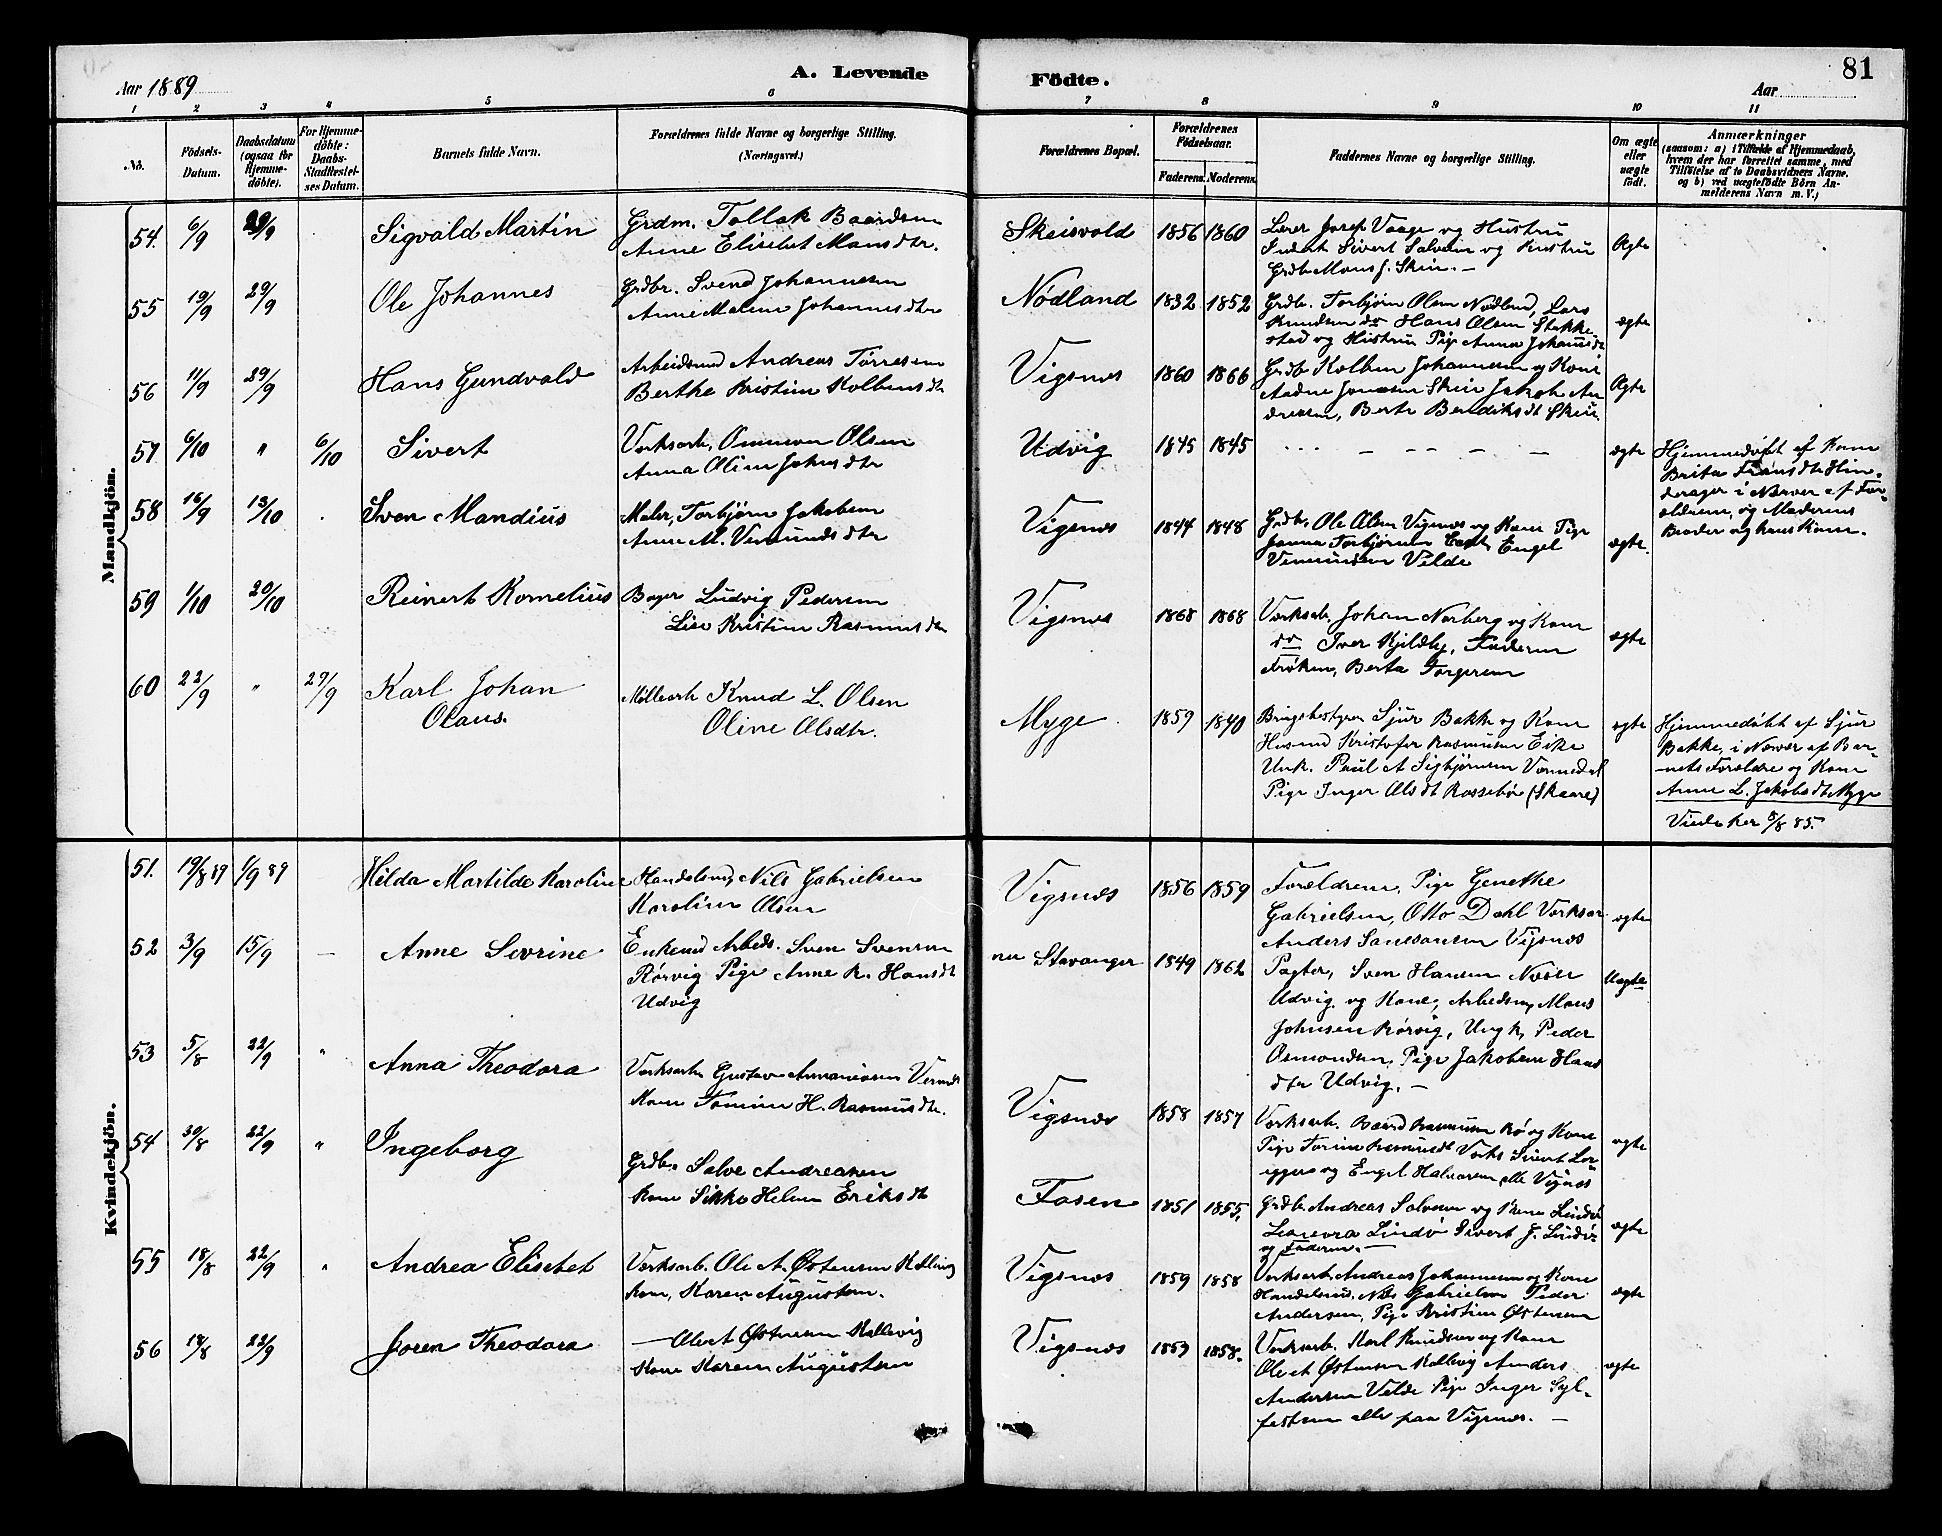 81
Aar 1889
A. Levende
Födte.
Aar
1 2 3 4 5 6 7 8 9 10 11
No.
Födsels-Datum.
Daabsdatum (ogsaa for Hjemmedöbte).
For Hjemmedöbte: Daabs-Stadfæstelses Datum.
Barnets fulde Navn.
Forældrenes fulde Navne og borgerlige Stilling. (Næringsvei.)
Forældrenes Bopæl.
Forældrenes Födselsaar.
Faderens. Moderens.
Faddernes Navne og borgerlige Stilling.
Om ægte eller uægte födt.
Anmærkninger
(saasom: a) i Tilfælde af Hjemmedaab,
hvem der har forrettet samme, med
Tilföielse af to Daabsvidners Navne.
og b) ved uægtefödte Börn An-
melderens Navn m. V.)
Mandkjön.
54. 6/9 29/9 Sigvald Martin
Grdm. Tollak Baardsen
Anne Elisebet Mansdtr.
Skeisvold 1856 1860
Lærer Josef Vaage og Hustru
Sivert Salvesen og Hustru
Grdb Mons J. Skeie. —
Ægte
55 19/9 29/9 Ole Johannes
Grdbr. Svend Johannesen
Anne Malene Johannesdtr
Nödland 1832 1852
Grdb. Torbjørn Olsen Nødland, Lars
Knudsen do Hans Olsen Stakke-
stad og Hustru Pige Anna Johansdt
ægte
56 11/9 29/9 Hans Gundvald
Arbeidsmd Andreas Tørresen
Berthe Kristine Kolbensdtr
Vigsnes 1860 1866
Grdb Kolben Johannesen og Kone
Aadne Jonassen Skeie Jakob An-
dreasen, Berte Bendiksdt Skeie.
Ægte
57 6/10 " 6/10 Sivert
Verksarb. Ommun Olsen
Anna Oline Johnsdtr
Udvig 1845 1845
ægte
Hjemmedøbt af Kone
Brita Fransdtr Hin-
derager i Nærvær af For-
ældrene, og Moderens
Broder og hans Kone.
58 16/9 13/10 Sven Mandius
Maler, Torbjørn Jakobsen
Anne M. Vermundsdtr
Vigsnes 1844 1848
Grdb. Ole Olsen Vigsnes og Kone Pige
Janna Torbjørnsen Engel
Vermundsen Velde
ægte.
59 1/10 20/10 Reinert Kornelius
Bager Ludvig Pedersen
Lise Kristine Rasmusdtr
Vigsnes 1868 1868
Verksarb. Johan Norberg og Kone
do Iver Kjeldby, Faderen
Frøken, Berta Torgersen
ægte
60 22/9 " 29/9 Karl Johan
Olaus.
Møllearb Knud L. Olsen
Oline Olsdtr.
Myge 1859 1840
Brugsbestyrer Sjur Bakke og Kone
Husmd Kristofer Rasmusen Eike
Unk. Paul A Sigbjørnsen Vormedal
Pige Inger Olsdt Rossebø (Skaare)
ægte
Hjemmedøbt af Sjur
Bakke, i Nærvær af Bar-
nets Forældre og Kone
Anne L. Jakobsdtr Myge
Viede her 8/8 85.
Kvindekjön.
51. 19/8 89 1/9 89 — Hilda Martilde Karoline
Handelsmd, Nils Gabrielsen
Karoline Olsen
Vigsnæs 1856 1859
Forældrene, Pige Genethe
Gabrielsen, Otto Dahl Verksar
Anders Vigsnæs
ægte
52 3/9 15/9 — Anne Sevrine
Enkemd Arbeds. Sven Svensen
Rørvig Pige Anne K. Hansdt
Udvig
nu Stavanger 1849 1862
Pagter, Sven Hansen
Udvig og Kone, Arbedsm, Mons
Johnsen Rørvig, Ungk, Peder
Osmondsen, Pige Jakobine Hans
dtr Udvig. —
Uægte
53 5/8 22/9 " Anna Theodora
Verksarb Gustav Annaniasen
Kone Tomine H. Rasmusdtr.
Vigsnæs 1858 1857
Verksarb. Baard Rasmusen Rø og Kone
Pige Torine Rasmusdt Verks
og Engel Halvorsen alle Vigsnæs
ægte
54 30/8 22/9 " Ingeborg
Grdb. Salve Andreasen
Kone Sikke Helene Eriksdt
Fosen 1851 1855,
Grdb Andreas Salvesen og Kone Lindø
Lindø Sivert J. Lindø
og Faderen. —
ægte
55 18/8 22/9 " Andrea Elisebet
Verksarb. Ole A. Østensen Kallevig
Kone, Karen Augustsen.
Vigsnæs 1859 1858
Verksarb Andreas Johannesen og Kone
Handelsmd. Nils Gabrielsen Peder
Andersen, Pige Kristine Østensen
ægte
56 18/8 22/9 Joren Theodora
— Ole A Østensen Kallevig
Kone Karen Augustsen
Vigsnæs 1859 1858.
Verksarb. Karl Knudsen og Kone
Ole A Østensen Kallevig Anders
Andersen Velde Pige Inger Syl-
festsen alle paa Vigsnæs. —
ægte